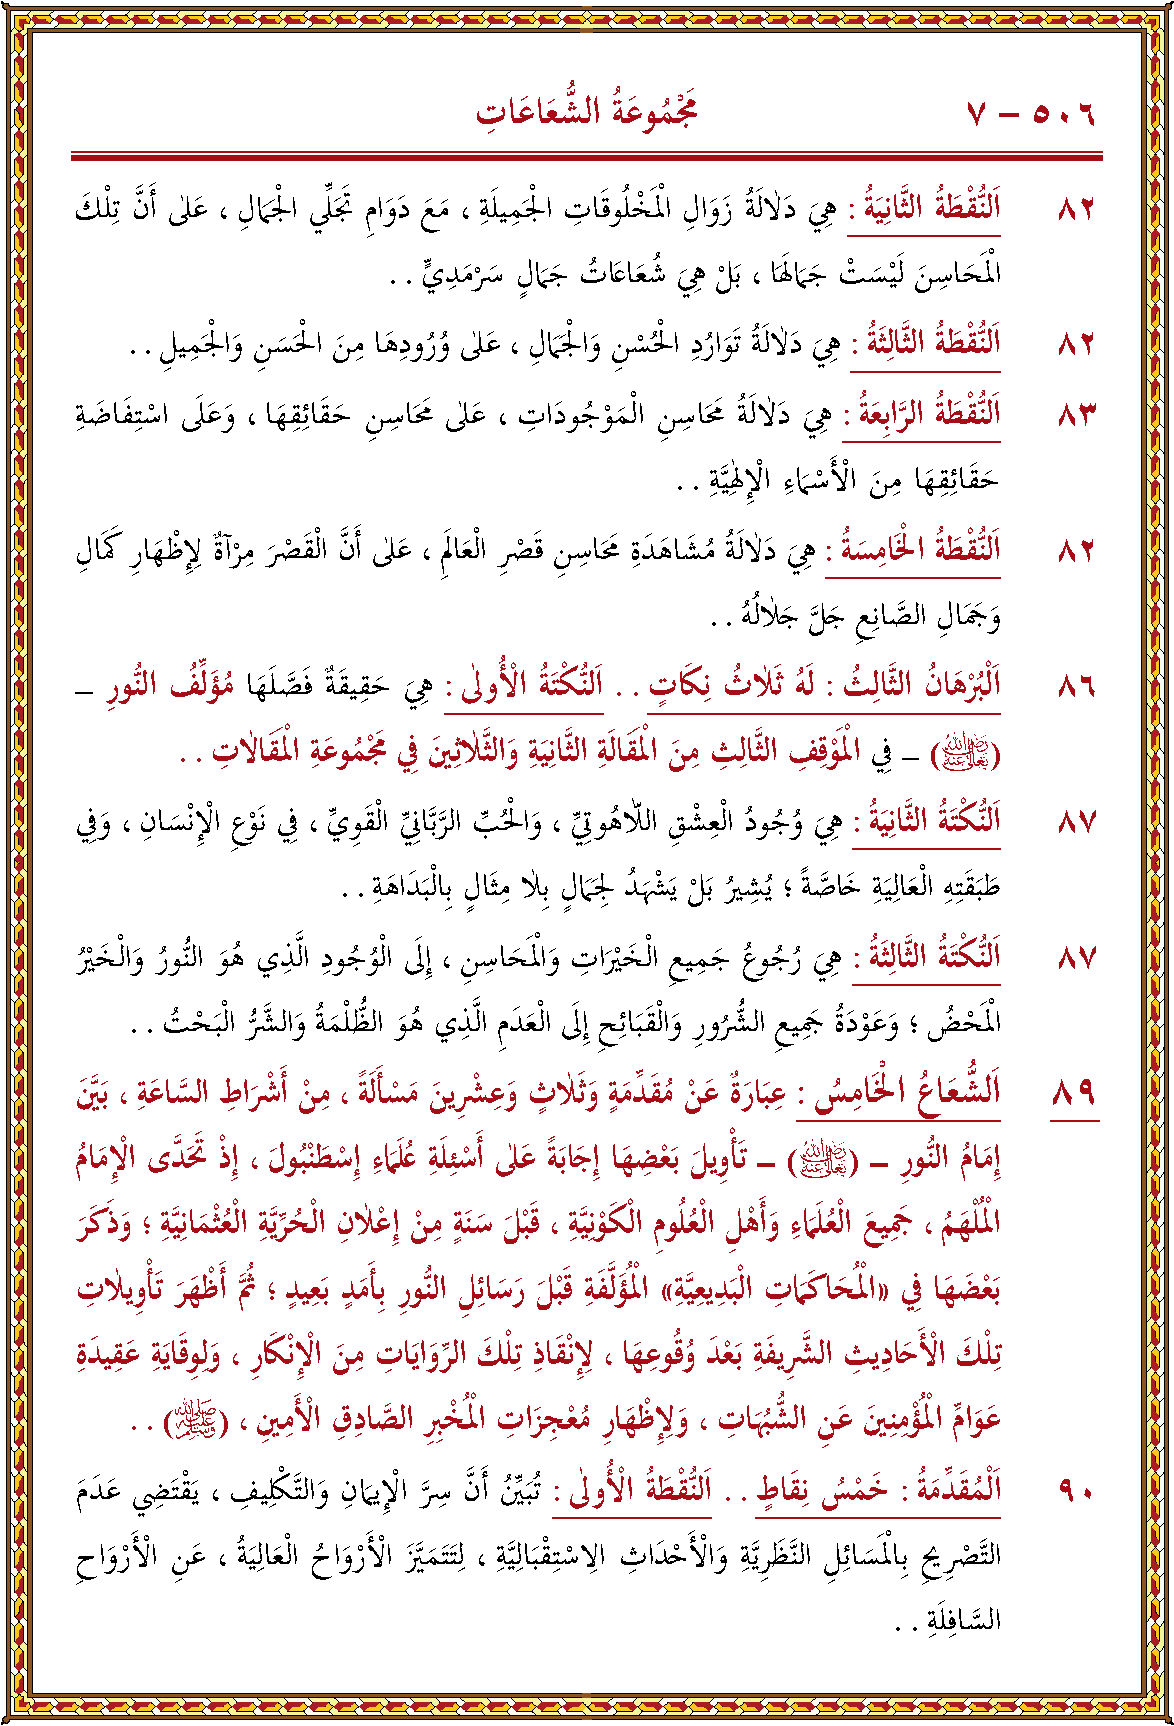 ٥٠٦ – ٧ مَجْمُوعَةُ الشُّعَاعَاتِ
٨٢ اَلنُّقْطَةُ الثَّانِيَةُ : هِيَ دَلاَلَةُ زَوَالِ الْمَخْلُوقَاتِ الْجَمِيلَةِ ، مَعَ دَوَامِ تَجَلِّي الْجَمَالِ ، عَلٰى أَنَّ تِلْكَ
الْمَحَاسِنَ لَيْسَتْ جَمَالَهَا ، بَلْ هِيَ شُعَاعَاتُ جَمَالٍ سَرْمَدِيٍّ . .
٨٢ اَلنُّقْطَةُ الثَّالِثَةُ : هِيَ دَلاَلَةُ تَوَارُدِ الْحُسْنِ وَالْجَمَالِ ، عَلٰى وُرُودِهَا مِنَ الْحَسَنِ وَالْجَمِيلِ . .
٨٣ اَلنُّقْطَةُ الرَّابِعَةُ : هِيَ دَلاَلَةُ مَحَاسِنِ الْمَوْجُودَاتِ ، عَلٰى مَحَاسِنِ حَقَائِقِهَا ، وَعَلَى اسْتِفَاضَةِ
حَقَائِقِهَا مِنَ الْأَسْمَاءِ الْإِلٰهِيَّةِ . .
٨٢ اَلنُّقْطَةُ الْخَامِسَةُ : هِيَ دَلاَلَةُ مُشَاهَدَةِ مَحَاسِنِ قَصْرِ الْعَالَمِ ، عَلٰى أَنَّ الْقَصْرَ مِرْآةٌ لِإِظْهَارِ كَمَالِ
وَجَمَالِ الصَّانِعِ جَلَّ جَلاَلُهُ . .
٨٦ اَلْبُرْهَانُ الثَّالِثُ : لَهُ ثَلاَثُ نِكَاتٍ . . اَلنُّكْتَةُ الْأُولٰى : هِيَ حَقِيقَةٌ فَصَّلَهَا مُؤَلِّفُ النُّورِ –
(رضي الله تعالى عنه) – فِي الْمَوْقِفِ الثَّالِثِ مِنَ الْمَقَالَةِ الثَّانِيَةِ وَالثَّلاَثِينَ فِي مَجْمُوعَةِ الْمَقَالاَتِ . .
٨٧ اَلنُّكْتَةُ الثَّانِيَةُ : هِيَ وُجُودُ الْعِشْقِ اللاَّهُوتِيِّ ، وَالْحُبِّ الرَّبَّانِيِّ الْقَوِيِّ ، فِي نَوْعِ الْإِنْسَانِ ، وَفِي
طَبَقَتِهِ الْعَالِيَةِ خَاصَّةً ؛ يُشِيرُ بَلْ يَشْهَدُ لِجَمَالٍ بِلاَ مِثَالٍ بِالْبَدَاهَةِ . .
٨٧ اَلنُّكْتَةُ الثَّالِثَةُ : هِيَ رُجُوعُ جَمِيعِ الْخَيْرَاتِ وَالْمَحَاسِنِ ، إِلَى الْوُجُودِ الَّذِي هُوَ النُّورُ وَالْخَيْرُ
الْمَحْضُ ؛ وَعَوْدَةُ جَمِيعِ الشُّرُورِ وَالْقَبَائِحِ إِلَى الْعَدَمِ الَّذِي هُوَ الظُّلْمَةُ وَالشَّرُّ الْبَحْتُ . .
٨٩ اَلشُّعَاعُ الْخَامِسُ : عِبَارَةٌ عَنْ مُقَدِّمَةٍ وَثَلاَثٍ وَعِشْرِينَ مَسْأَلَةً ، مِنْ أَشْرَاطِ السَّاعَةِ ، بَيَّنَ
إِمَامُ النُّورِ – (رضي الله تعالى عنه) – تَأْوِيلَ بَعْضِهَا إِجَابَةً عَلٰى أَسْئِلَةِ عُلَمَاءِ إِسْطَنْبُولَ ، إِذْ تَحَدَّى الْإِمَامُ
الْمُلْهَمُ ، جَمِيعَ الْعُلَمَاءِ وَأَهْلِ الْعُلُومِ الْكَوْنِيَّةِ ، قَبْلَ سَنَةٍ مِنْ إِعْلاَنِ الْحُرِّيَّةِ الْعُثْمَانِيَّةِ ؛ وَذَكَرَ
بَعْضَهَا فِي «الْمُحَاكَمَاتِ الْبَدِيعِيَّةِ» الْمُؤَلَّفَةِ قَبْلَ رَسَائِلِ النُّورِ بِأَمَدٍ بَعِيدٍ ؛ ثُمَّ أَظْهَرَ تَأْوِيلاَتِ
تِلْكَ الْأَحَادِيثِ الشَّرِيفَةِ بَعْدَ وُقُوعِهَا ، لِإِنْقَاذِ تِلْكَ الرِّوَايَاتِ مِنَ الْإِنْكَارِ ، وَلِوِقَايَةِ عَقِيدَةِ
عَوَامِّ الْمُؤْمِنِينَ عَنِ الشُّبُهَاتِ ، وَلِإِظْهَارِ مُعْجِزَاتِ الْمُخْبِرِ الصَّادِقِ الْأَمِينِ ، (ﷺ) . .
٩٠ اَلْمُقَدِّمَةُ : خَمْسُ نِقَاطٍ . . اَلنُّقْطَةُ الْأُولٰى : تُبَيِّنُ أَنَّ سِرَّ الْإِيمَانِ وَالتَّكْلِيفِ ، يَقْتَضِي عَدَمَ
التَّصْرِيحِ بِالْمَسَائِلِ النَّظَرِيَّةِ وَالْأَحْدَاثِ الاِسْتِقْبَالِيَّةِ ، لِتَتَمَيَّزَ الْأَرْوَاحُ الْعَالِيَةُ ، عَنِ الْأَرْوَاحِ
السَّافِلَةِ . .